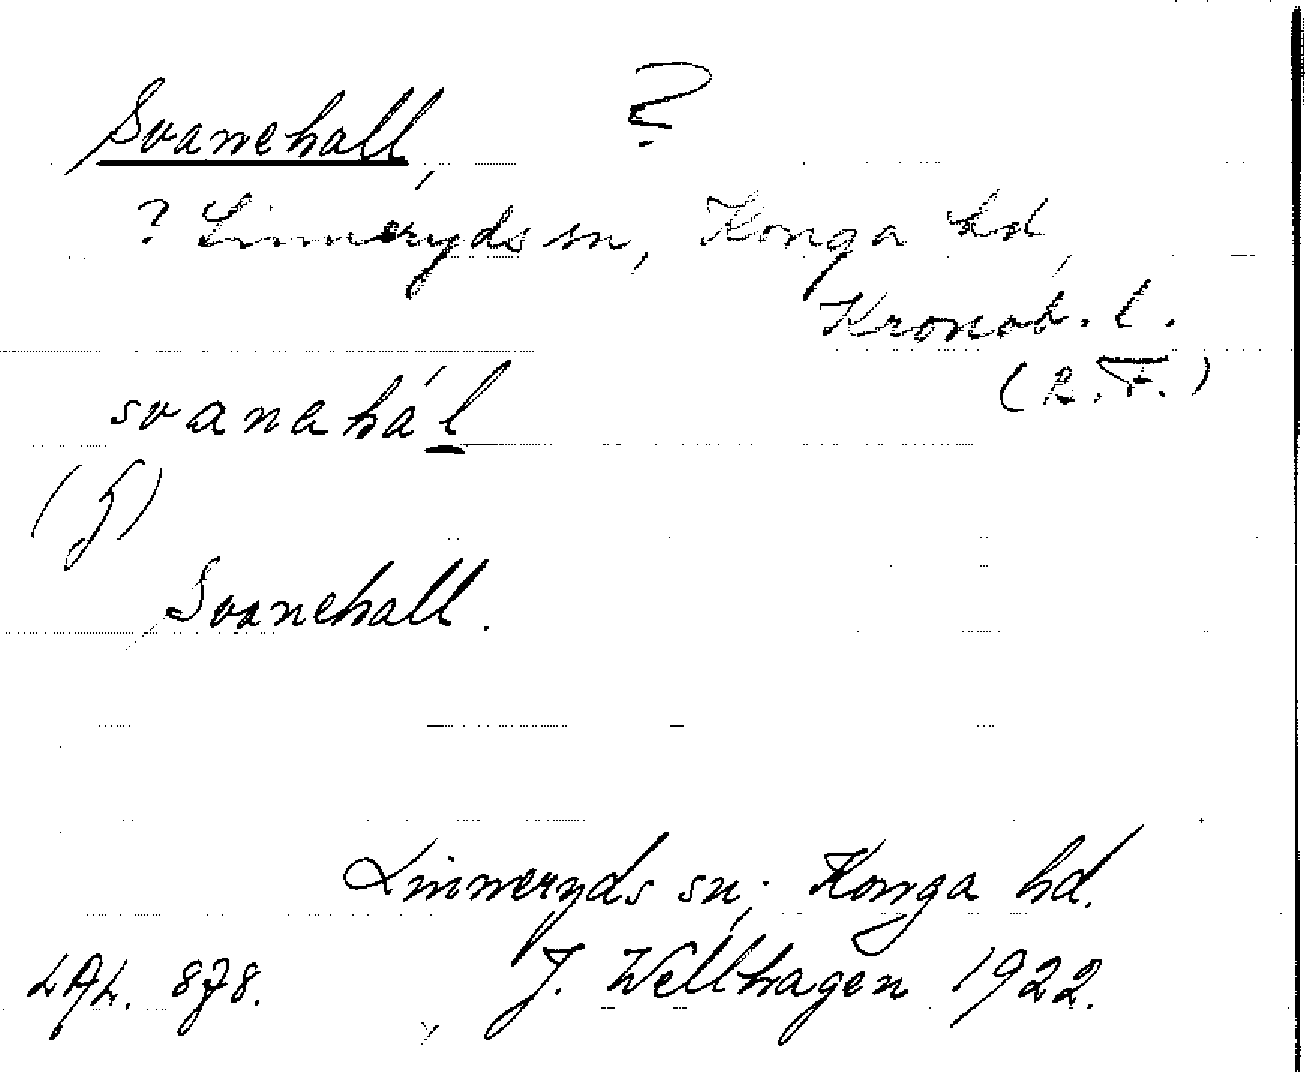 Svanehall, ?
? Linneryds sn, Konga hd,
Kronob. l.
(R.F.)
svanahál
(f)
Svanehall.
Linneryds sn; Konga hd.
LAL. 878. J. Wellhagen 1922.